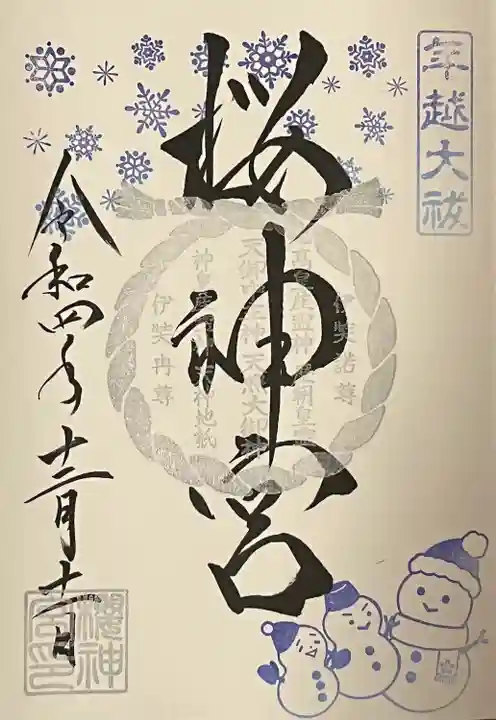 年越大祓
桜神宮
伊奘諾尊
高皇産霊神 歴朝皇霊
天御中主神 天照大御神
神皇産霊神 天神地祇
伊奘冉尊
令和四年十二月十一日
櫻神宮印